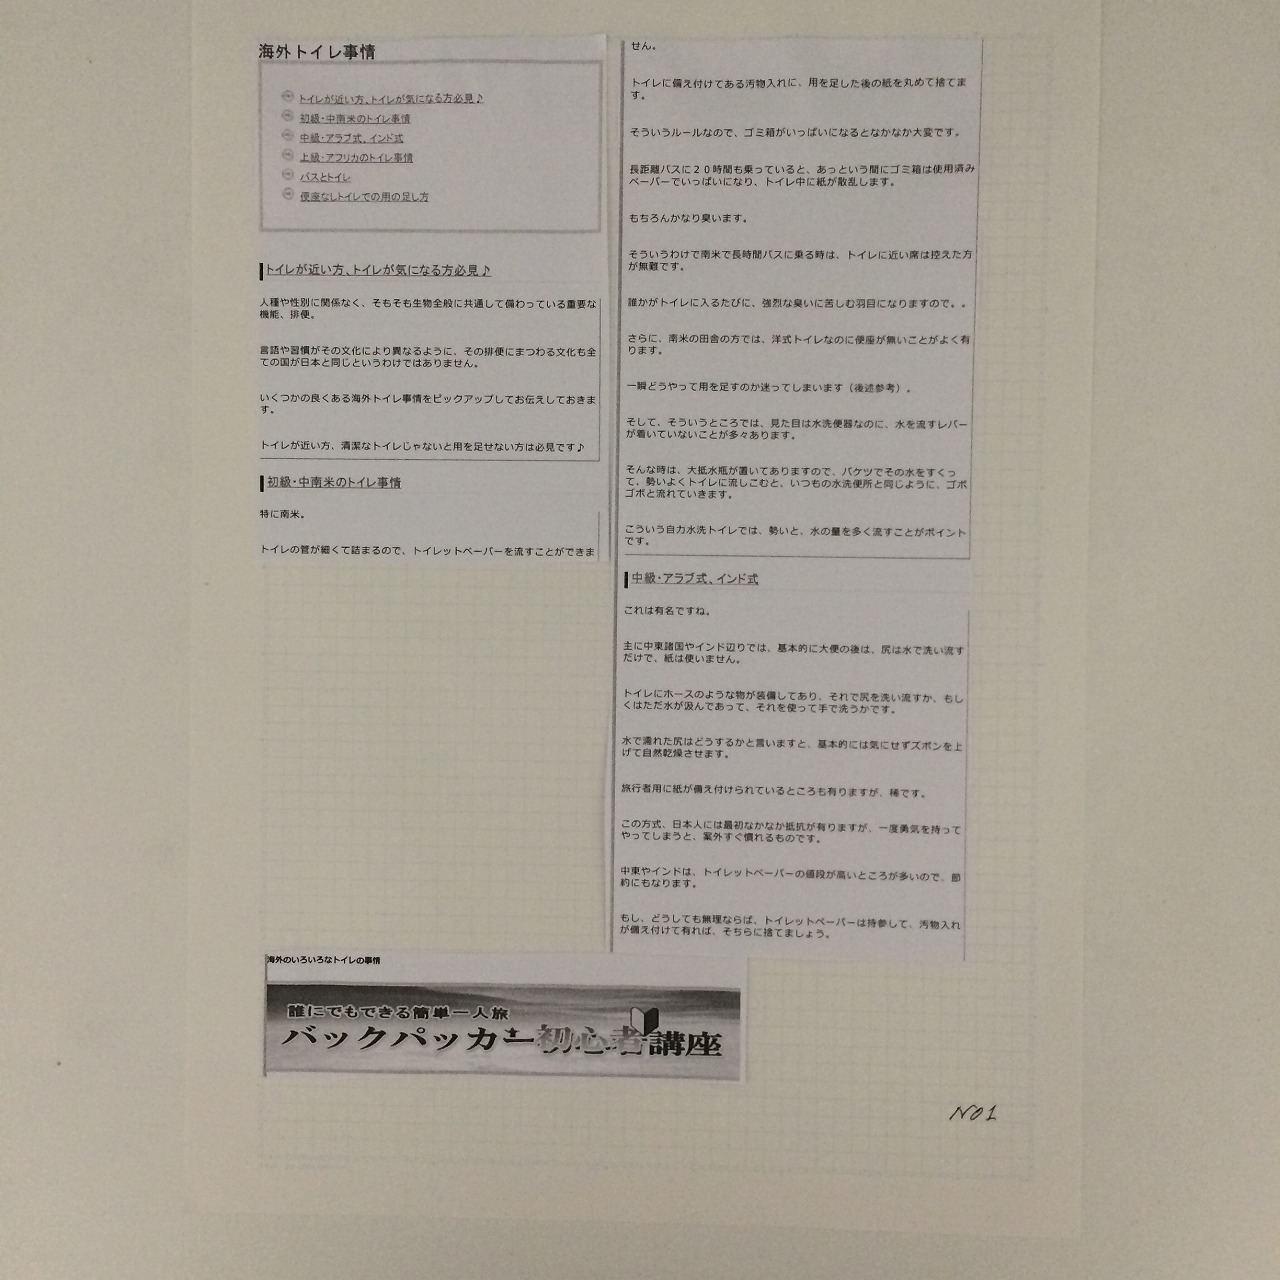 海外トイレ事情
トイレが近い方、トイレが気になる方必見♪
初級・中南米のトイレ事情
中級・アラブ式、インド式
上級・アフリカのトイレ事情
バスとトイレ
便座なしトイレでの用の足し方
トイレが近い方、トイレが気になる方必見♪
人種や性別に関係なく、そもそも生物全般に共通して備わっている重要な
機能、排便。
言語や習慣がその文化により異なるように、その排便にまつわる文化も全
ての国が日本と同じというわけではありません。
いくつかの良くある海外トイレ事情をピックアップしてお伝えしておきま
す。
トイレが近い方、清潔なトイレじゃないと用を足せない方は必見です♪
初級・中南米のトイレ事情
特に南米。
トイレの管が細くて詰まるので、トイレットペーパーを流すことができま
せん。
トイレに備え付けてある汚物入れに、用を足した後の紙を丸めて捨てま
す。
そういうルールなので、ゴミ箱がいっぱいになるとなかなか大変です。
長距離バスに２０時間も乗っていると、あっという間にゴミ箱は使用済み
ペーパーでいっぱいになり、トイレ中に紙が散乱します。
もちろんかなり臭います。
そういうわけで南米で長時間バスに乗る時は、トイレに近い席は控えた方
が無難です。
誰かがトイレに入るたびに、強烈な臭いに苦しむ羽目になりますので。。
さらに、南米の田舎の方では、洋式トイレなのに便座が無いことがよく有
ります。
一瞬どうやって用を足すのか迷ってしまいます（後述参考）。
そして、そういうところでは、見た目は水洗便器なのに、水を流すレバー
が着いていないことが多々あります。
そんな時は、大抵水瓶が置いてありますので、バケツでその水をすくっ
て、勢いよくトイレに流しこむと、いつもの水洗便所と同じように、ゴボ
ゴボと流れていきます。
こういう自力水洗トイレでは、勢いと、水の量を多く流すことがポイント
です。
中級・アラブ式、インド式
これは有名ですね。
主に中東諸国やインド辺りでは、基本的に大便の後は、尻は水で洗い流す
だけで、紙は使いません。
トイレにホースのような物が装備してあり、それで尻を洗い流すか、もし
くはただ水が汲んであって、それを使って手で洗うかです。
水で濡れた尻はどうするかと言いますと、基本的には気にせずズボンを上
げて自然乾燥させます。
旅行者用に紙が備え付けられているところも有りますが、稀です。
この方式、日本人には最初なかなか抵抗が有りますが、一度勇気を持って
やってしまうと、案外すぐ慣れるものです。
中東やインドは、トイレットペーパーの値段が高いところが多いので、節
約にもなります。
もし、どうしても無理ならば、トイレットペーパーは持参して、汚物入れ
が備え付けて有れば、そちらに捨てましょう。
海外のいろいろなトイレの事情
誰にでもできる簡単一人旅
バックパッカー初心者講座
NO1